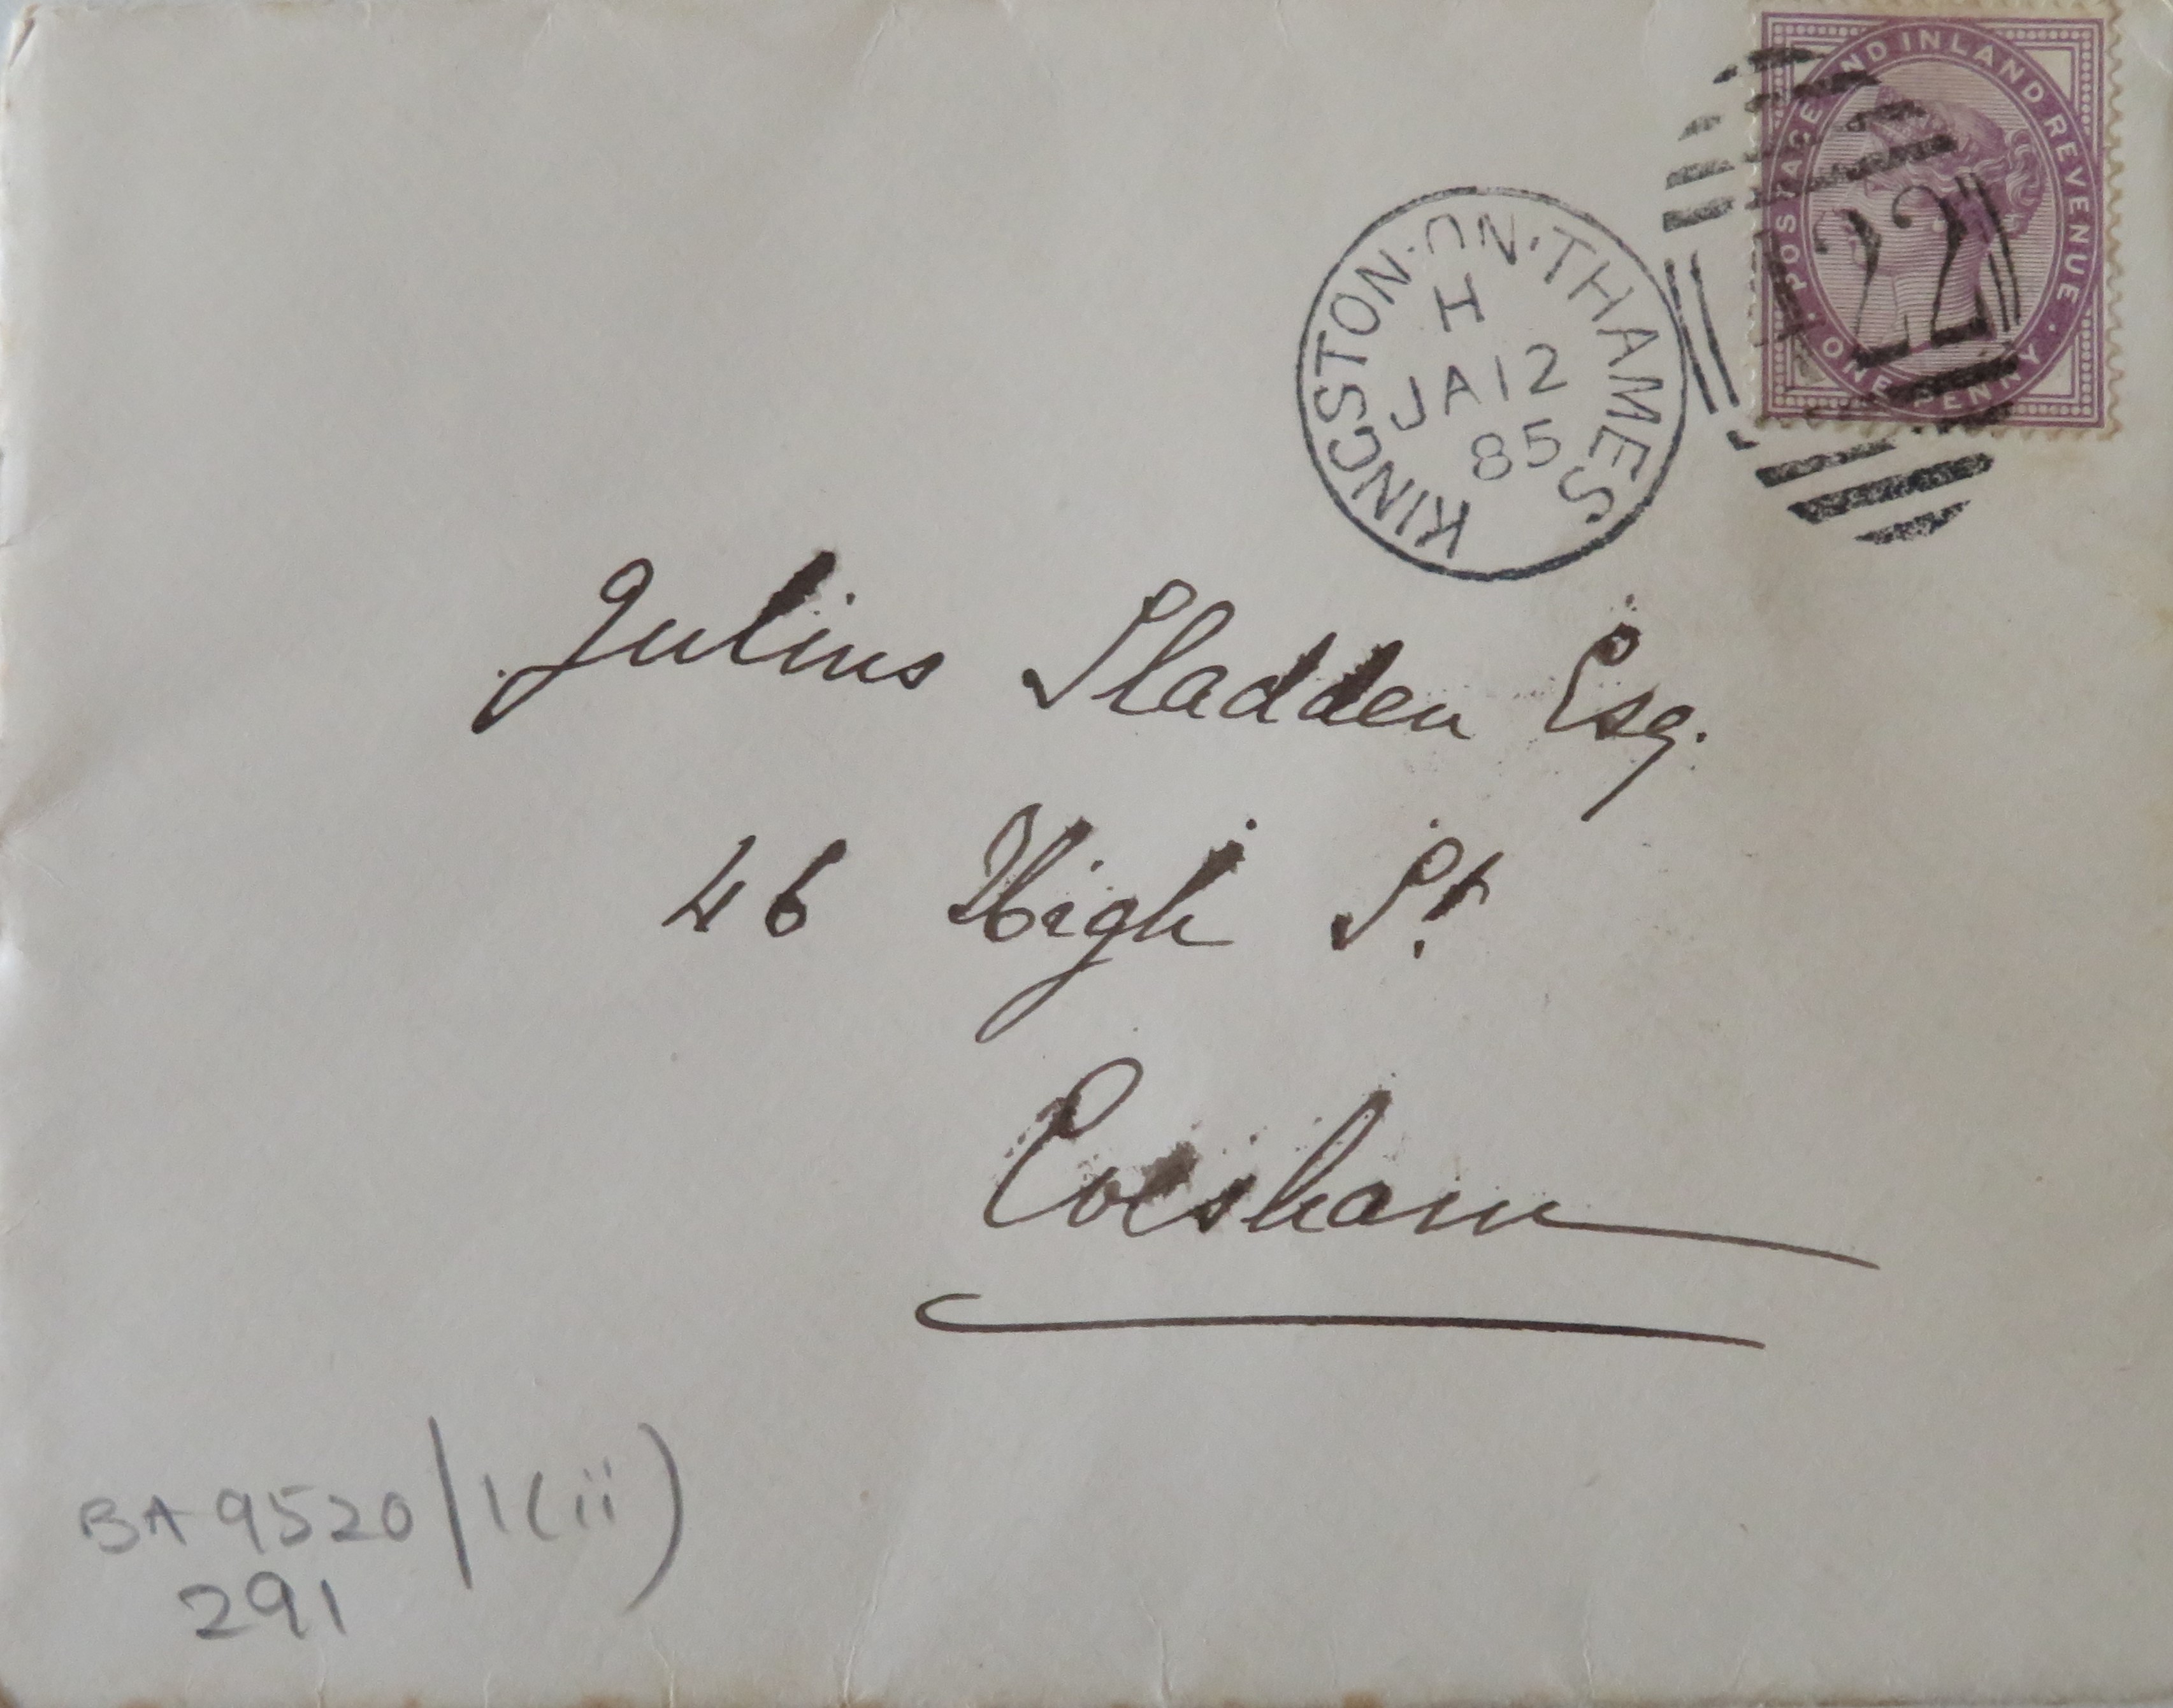 POSTAGE AND INLAND REVENUE
ONE PENNY
422
KINGSTON·ON·THAMES
H
JA 12
85
Julius Sladden Esq.
46 High St
Evesham
BA 9520/1(ii)
291